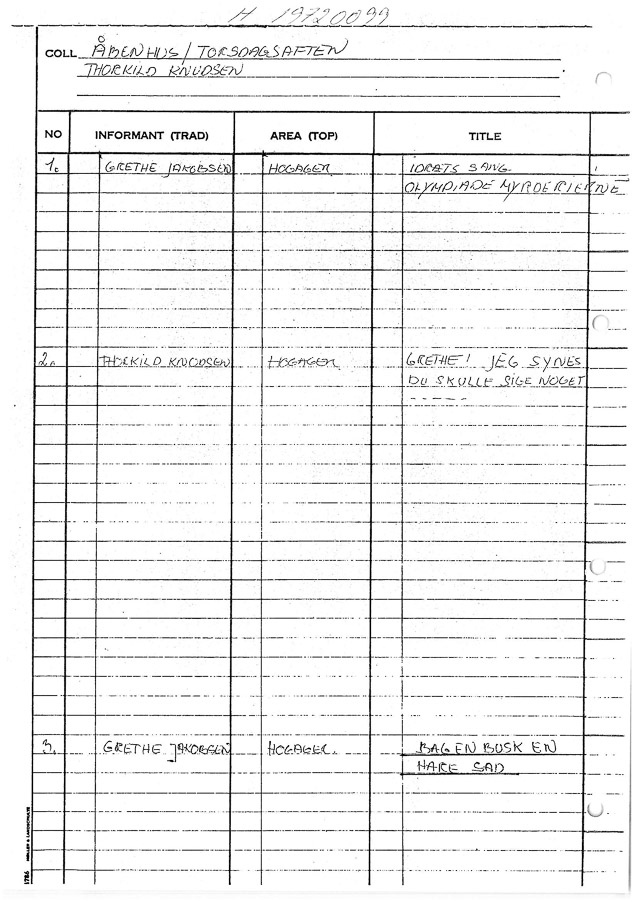 H 19720099
COLL ÅBENHUS / TORSDAGSAFTEN
THORKILD KNUDSEN
NO INFORMANT (TRAD) AREA (TOP) TITLE
1. GRETHE JAKOBSEN HOGAGER IDRÆTS SANG.
OLYMPIADE MYRDERIERNE
2. THORKILD KNUDSEN HOGAGER GRETHE! JEG SYNES
DU SKULLE SIGE NOGET
-----
3. GRETHE JAKOBSEN HOGAGER. BAG EN BUSK EN
HARE SAD
1786